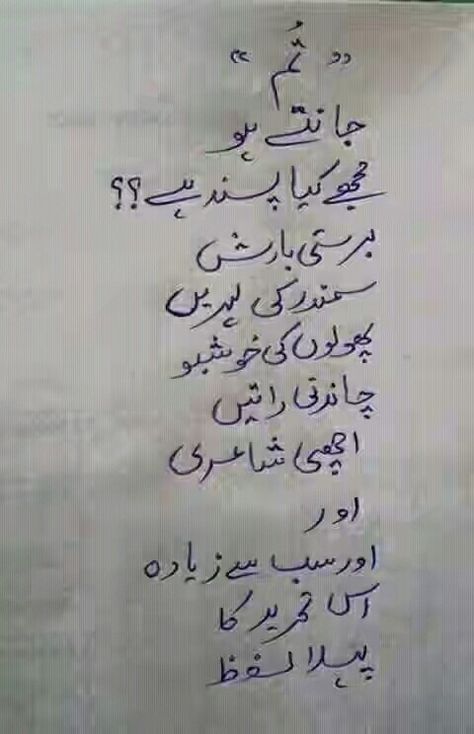 ” تُم “
جانتے ہو
مجھے کیا پسند ہے؟؟
برستی بارش
سمندر کی لہریں
پھولوں کی خوشبو
چاندنی راتیں
اچھی شاعری
اور
اور سب سے زیادہ
اس تحریر کا
پہلا لفظ